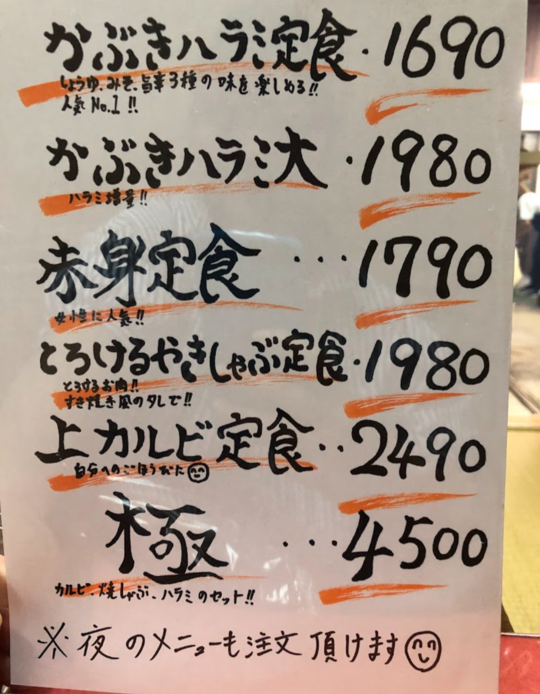 かぶきハラミ定食・1690
しょうゆ、みそ、旨辛3種の味を楽しめる!!
人気No.1!!
かぶきハラミ大・1980
ハラミ増量!!
赤身定食・・・1790
女性に人気!!
とろけるやきしゃぶ定食・1980
とろけるお肉!!
すき焼き風のタレで!!
上カルビ定食・・2490
自分へのごほうびに
極・・・4500
カルビ、焼しゃぶ、ハラミのセット!!
※夜のメニューも注文頂けます